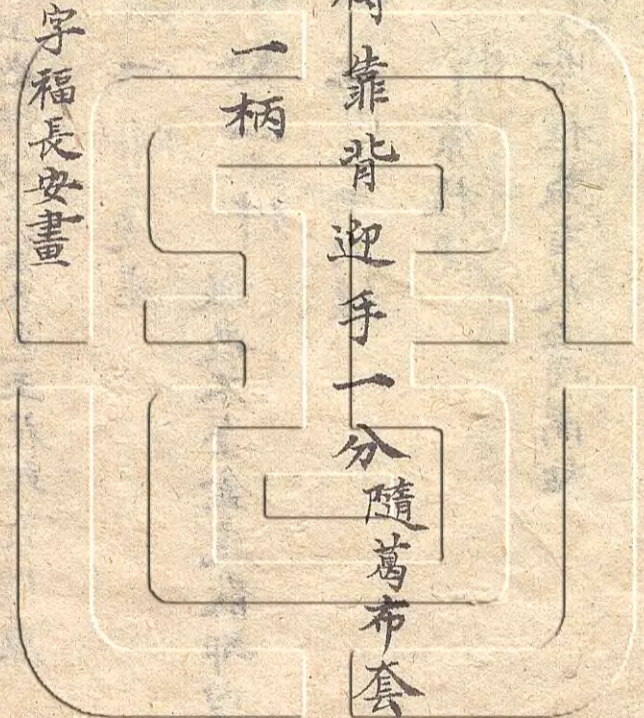 靠背迎手一分隨葛布套
一柄
字福長安畫